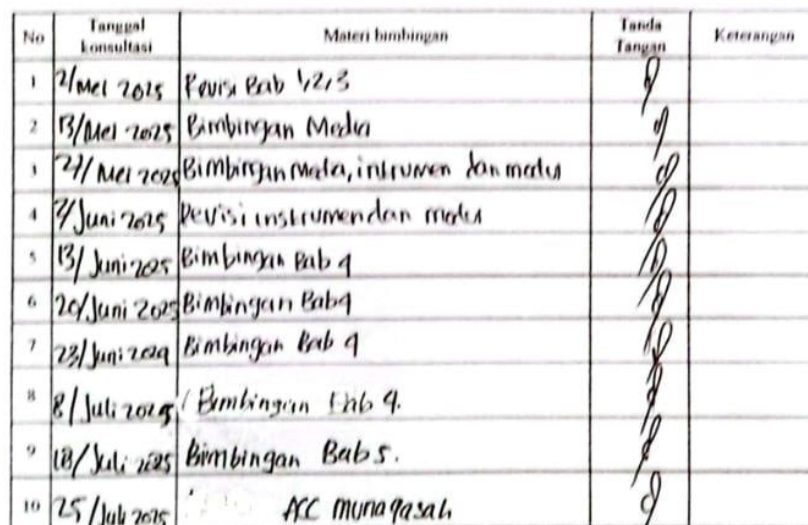 No Tanggal konsultasi Materi bimbingan Tanda Tangan Keterangan
1 2/Mei 2025 Revisi Bab 1,2,3
2 13/Mei 2025 Bimbingan Media
3 27/Mei 2025 Bimbingan Media, instrumen dan modul
4 4/Juni 2025 Revisi instrumen dan modul
5 13/Juni 2025 Bimbingan Bab 4
6 20/Juni 2025 Bimbingan Bab 4
7 23/Juni 2029 Bimbingan Bab 4
8 8/Juli 2025 Bimbingan Bab 4.
9 18/Juli 2025 Bimbingan Bab 5.
10 25/Juli 2025 ACC munaqasah